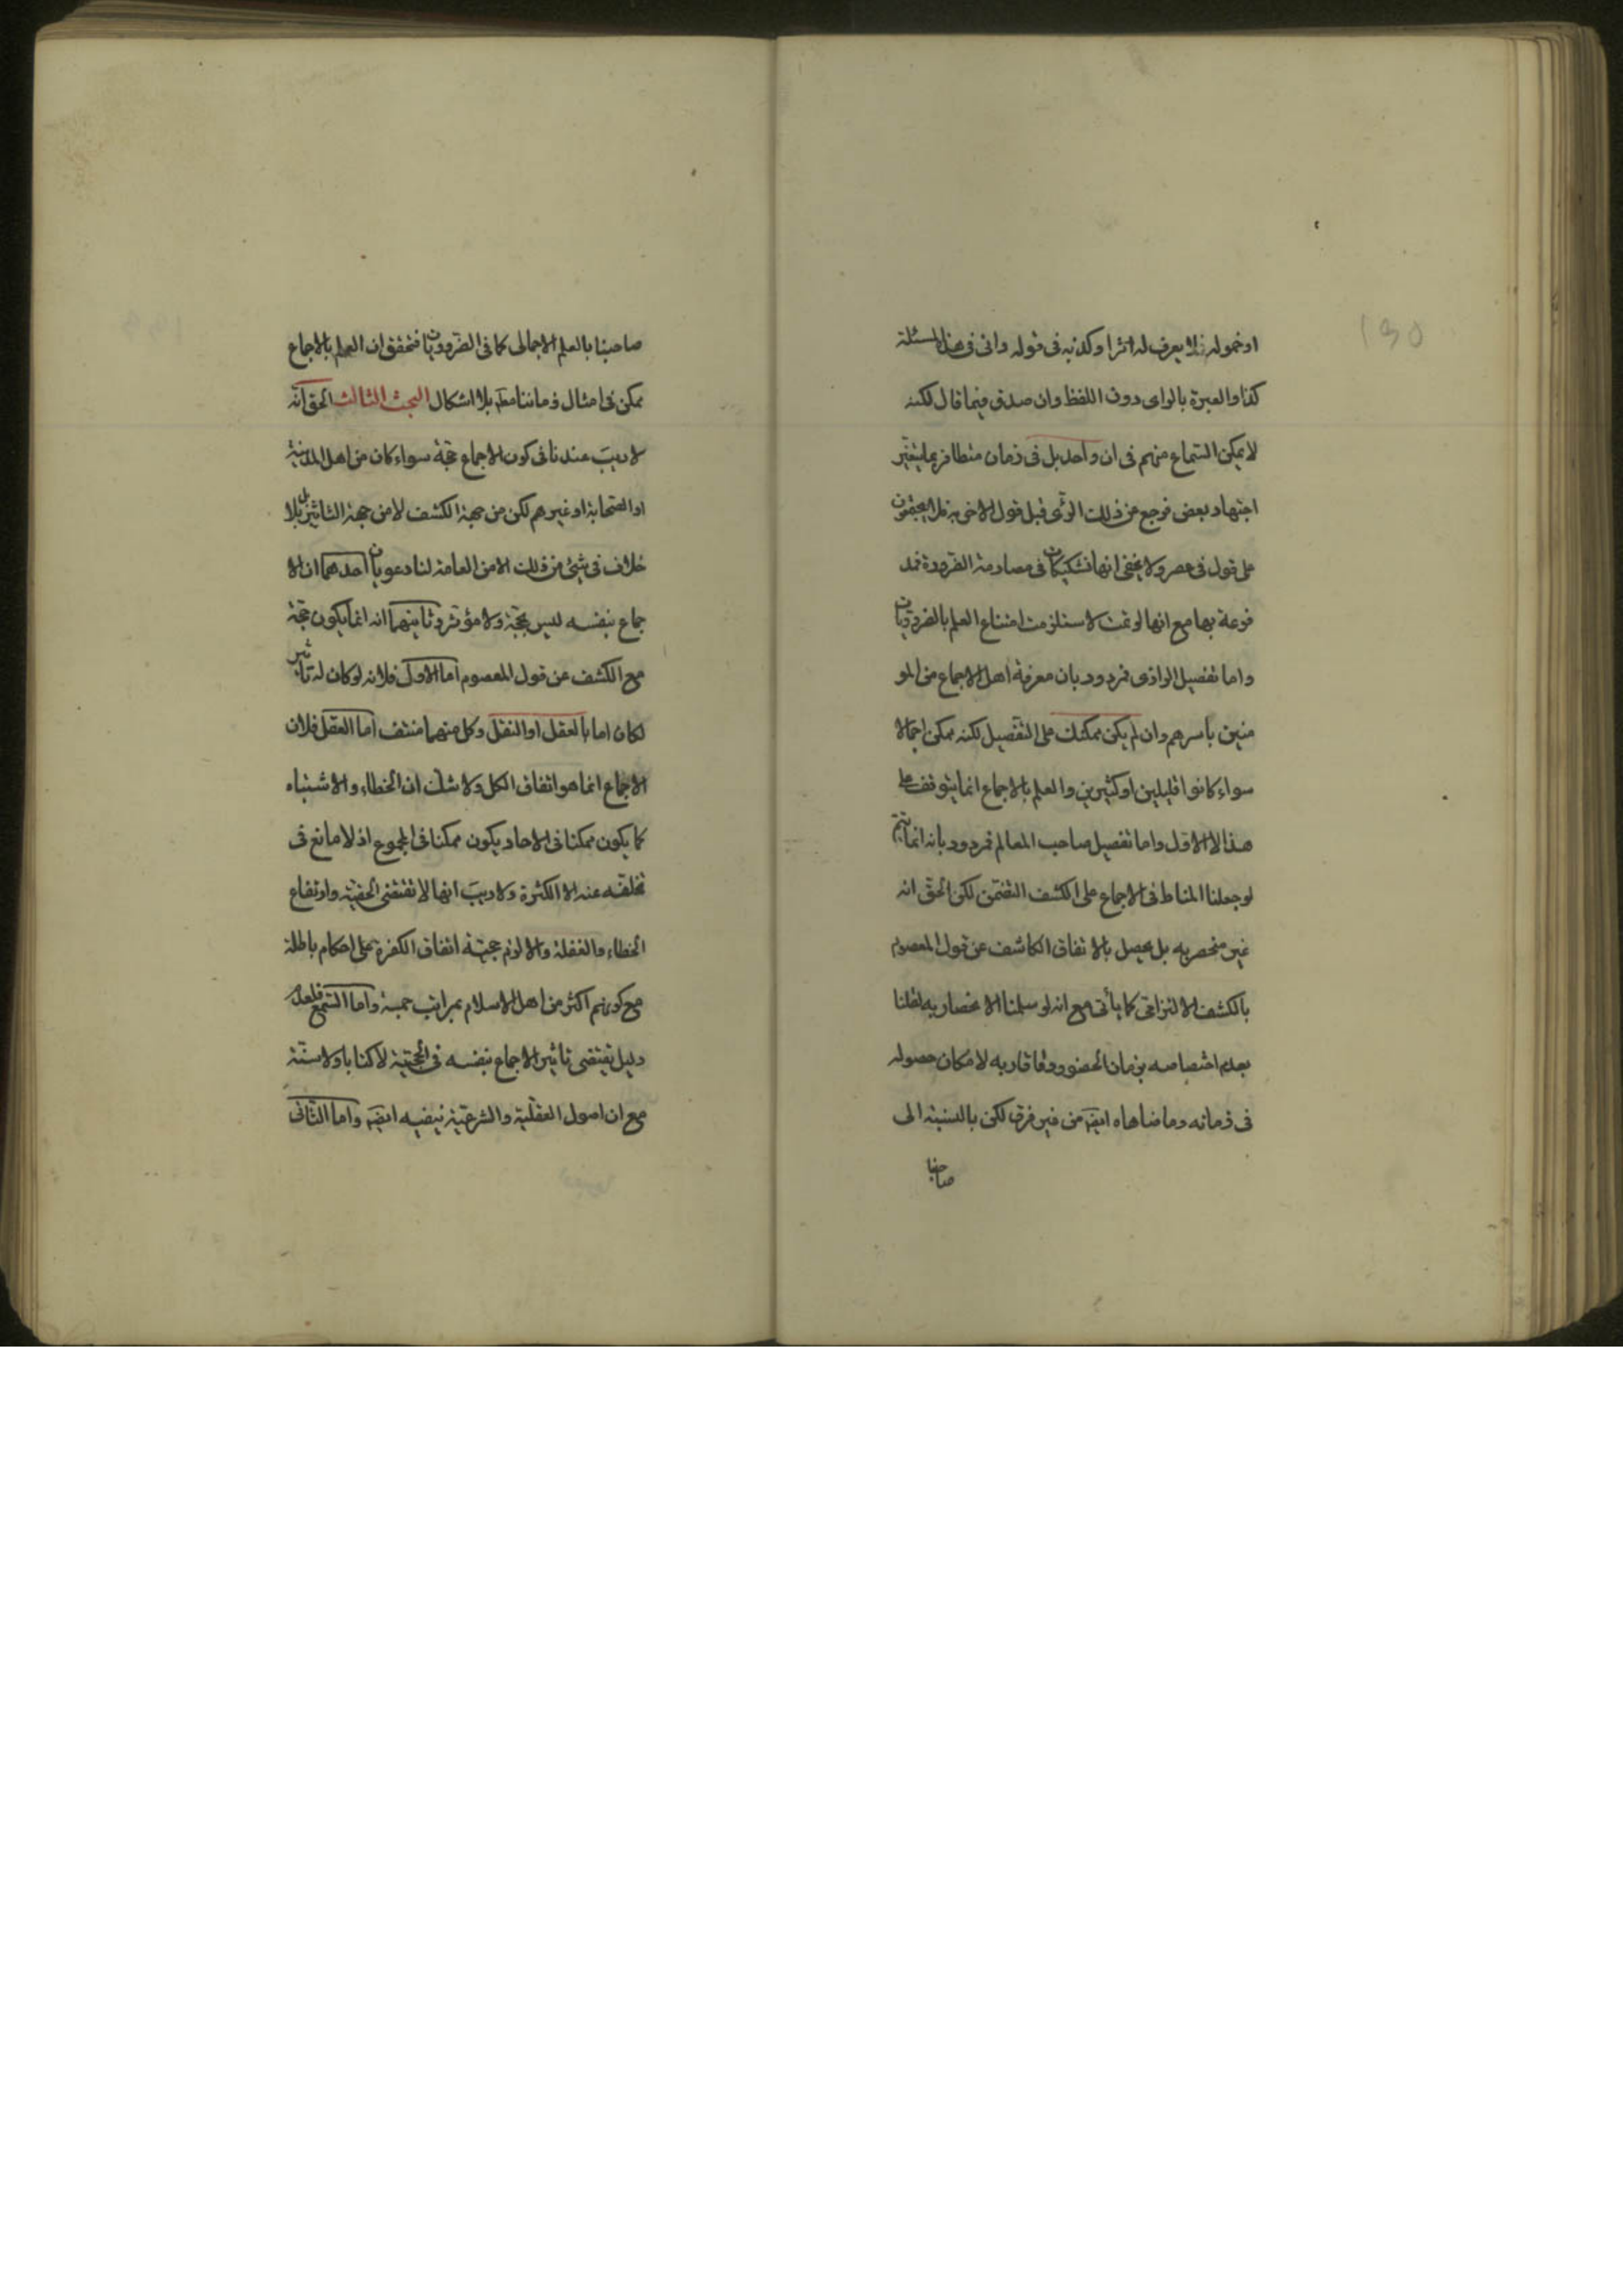 ١٣٥
او خموله فلا يعرف له اثرا وكذبه فى قوله وانى فى هذه المسئلة
كذا والعبرة بالراى دون اللفظ وان صدق فيما قال لكنه
لا يمكن السماع منهم فى ان واحد بل فى زمان متطا فربما يتغير
اجتهاد بعض فرجع عن ذلك الرأى قبل قول الاخر به فلا يجتمعون
على قول فى عصر ولا يخفى انها تشكيكات فى مصادمة الضرورة فمد
فوعة بها مع انها لو تمت لاستلزمت امتناع العلم بالضروريات
واما تفصيل الرازى فمردود بان معرفة اهل الاجماع من المؤ
منين باسرهم وان لم يكن ممكنك على التفصيل لكنه ممكن اجمالا
سواء كانوا قليلين او كثيرين والعلم بالاجماع انما يتوقف على
هذا لا الاول واما تفصيل صاحب المعالم فمردود بانه انما يتم
لو جعلنا المناط فى الاجماع على الكشف التضمن لكن الحق انه
غير منحصر به بل يحصل بالاتفاق الكاشف عن قول المعصوم
بالكشف الالتزامى كما يأتى مع انه لو سلمنا الانحصار به لقلنا
بعدم اختصاصه بزمان الحضور وما قاربه لامكان حصوله
فى زمانه وما ضاهاه ايضا من غير فرق لكن بالنسبة الى
صاحبنا
صاحبنا بالعلم الاجمالى كما فى الضروريات فتحقق ان العلم بالاجماع
ممكن فى امثال زماننا مط بلا اشكال البحث الثالث الحق انه
لا ريب عندنا فى كون الاجماع حجة سواء كان من اهل المدينة
او الصحابة او غيرهم لكن من جهة الكشف لا من جهة التاثير بل بلا
خلاف فى شيئ من ذلك الا من العامة لنا دعويان احدهما ان الا
جماع بنفسه ليس بحجة ولا مؤثر وثانيهما انه انما يكون حجة
مع الكشف عن قول المعصوم اما الاول فلانه لو كان له تأثير
لكان اما بالعقل او النقل وكل منهما منتف اما العقل فلان
الاجماع انما هو اتفاق الكل ولا شك ان الخطاء والاشتباه
كما يكون ممكنا فى الاحاد يكون ممكنا فى المجموع اذ لا مانع فى
تخلقه عنه الا الكثرة ولا ريب انها لا تقتضى الحقية وارتفاع
الخطاء والغفلة والا لزم حجية اتفاق الكفرة على احكام باطلة
مع كونهم اكثر من اهل الاسلام بمراتب جمة واما السمع فلعدم
دليل يقتضى تاثير الاجماع بنفسه فى الحجية لا كتابا ولا سنة
مع ان اصول العقلية والشرعية نيفيه ايضا واما الثانى